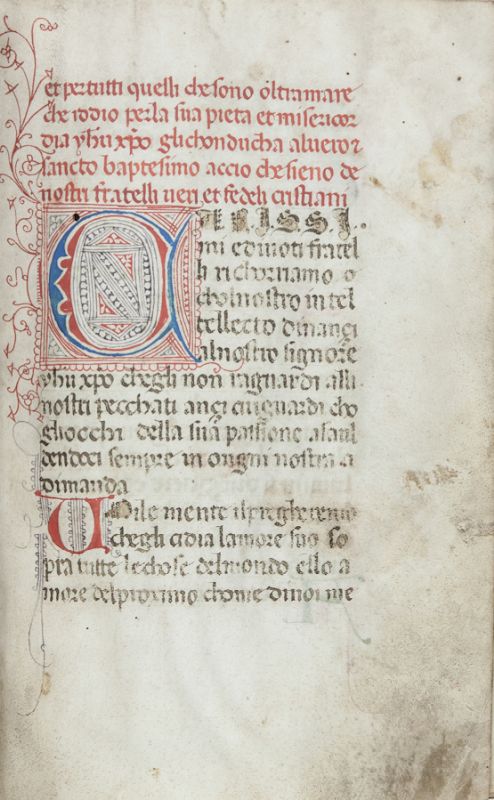 et per tutti quelli che sono oltramare
che iddio per la sua pieta et misericor
dia yhu xpo gli chonducha al vero et
sancto baptesimo accio che sieno de
nostri fratelli veri et fedeli cristiani
CARISSI
mi e divoti fratel
li richorriamo o
chol nostro intel
lecto dinançi
al nostro signore
yhu xpo chegli non raguardi alli
nostri pecchati ançi ci riguardi cho
gliocchi della sua passione asaul
dendoci sempre in ongni nostra a
dimanda
Umile mente il pregheremo
chegli ci dia lamore suo so
pra tutte le chose del mondo ello a
more del proximo chome di noi me